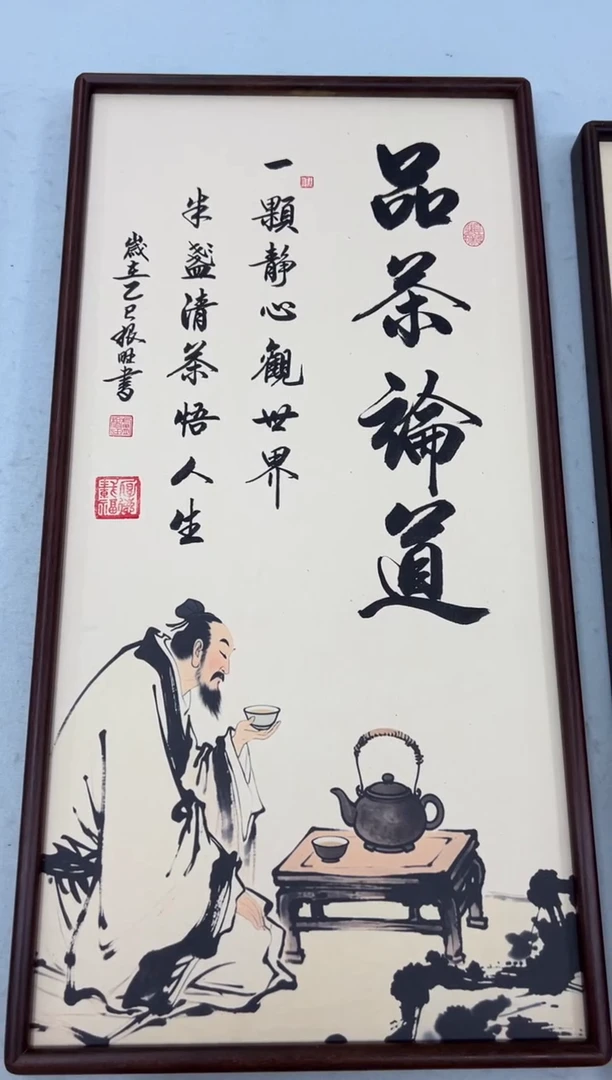 品茶論道
一顆靜心觀世界
半盞清茶悟人生
歲在乙巳振旺書